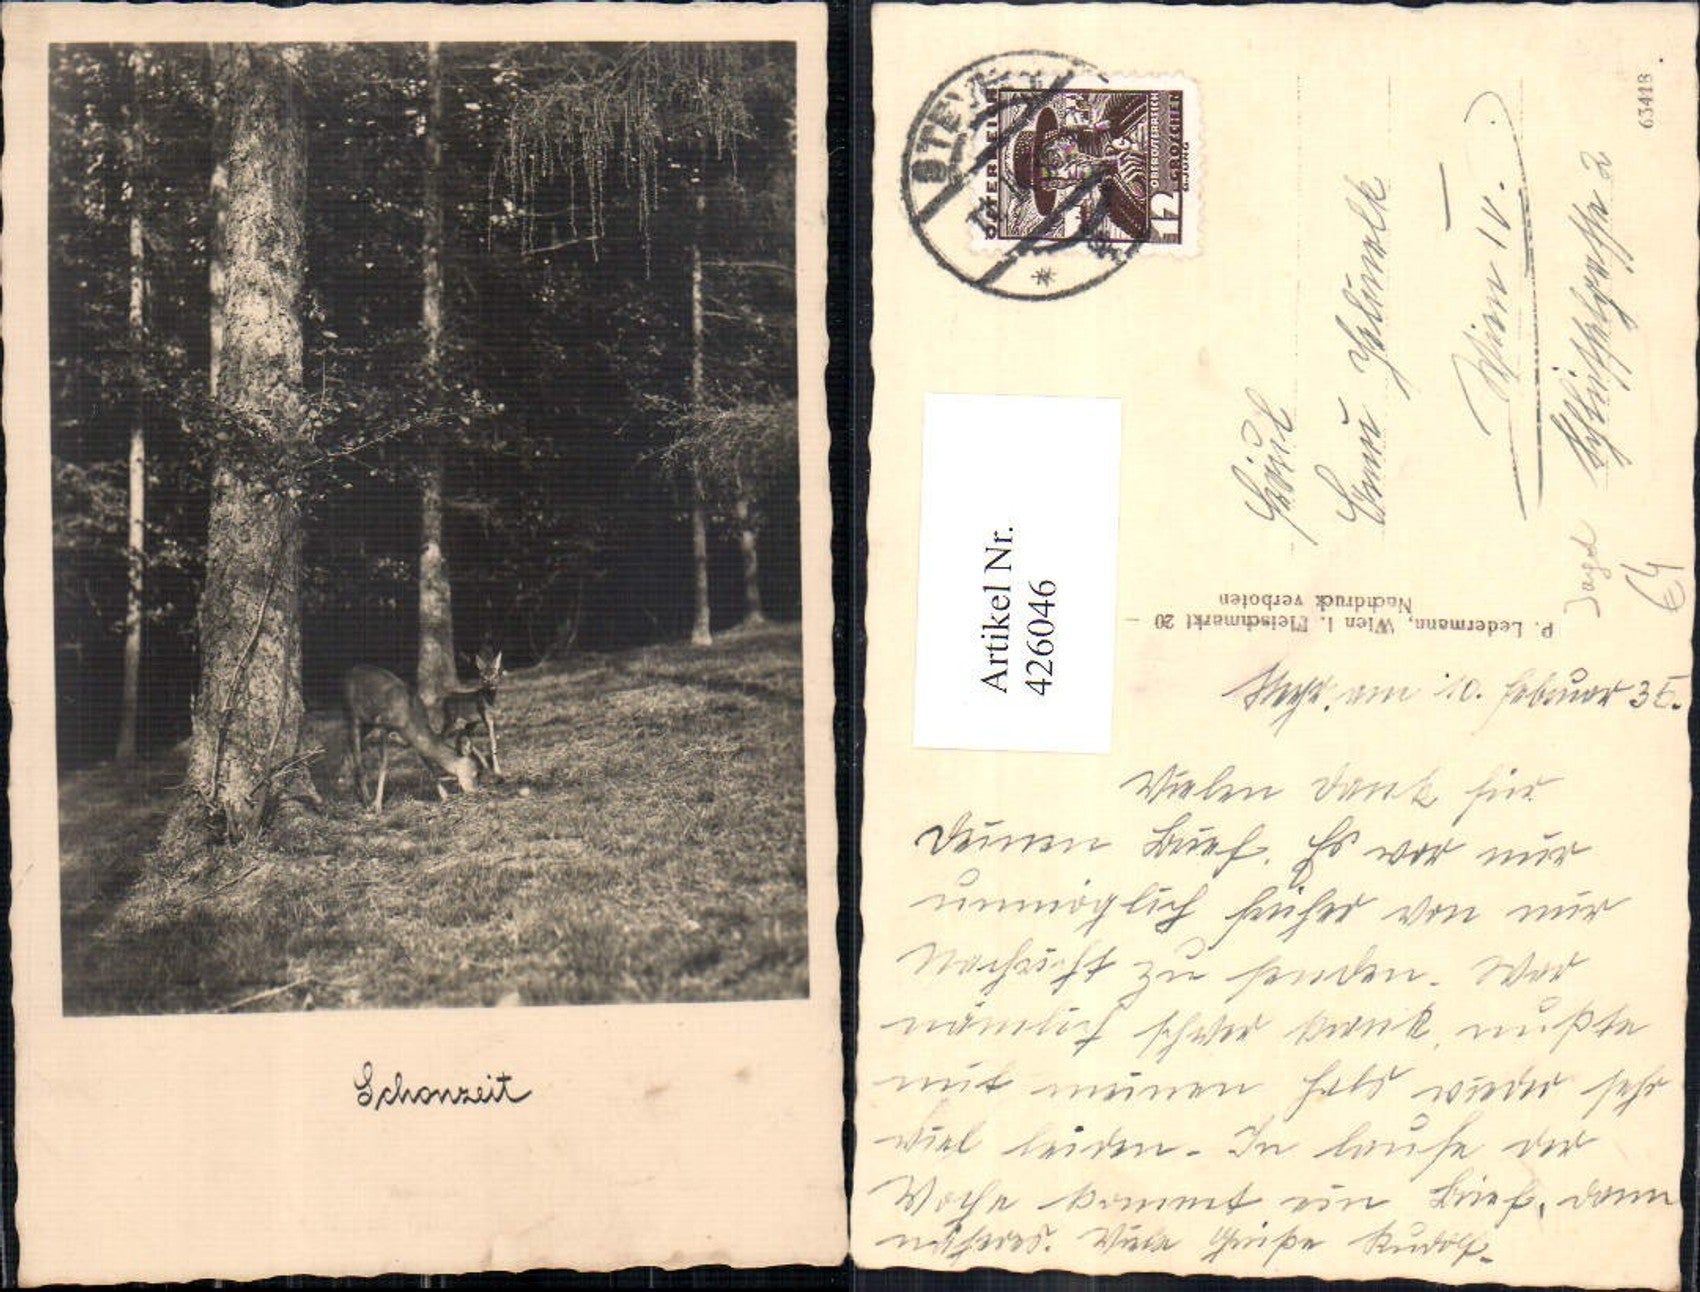 Schonzeit
ÖSTERREICH
OBERÖSTERREICH
12 GROSCHEN
Artikel Nr.
426046
63418
Wien IV.
P. Ledermann, Wien I. Fleischmarkt 20 –
Nachdruck verboten
Jagd
€4
am 10. Februar
Vielen Dank für
Deinen Brief. Es war mir
unmöglich früher von mir
Nachricht zu senden. War
nämlich schwer krank, mußte
mit meinem Hals wieder sehr
viel leiden. In Laufe der
Woche kommt ein Brief, dann
näheres. Viele Grüße Rudolf.